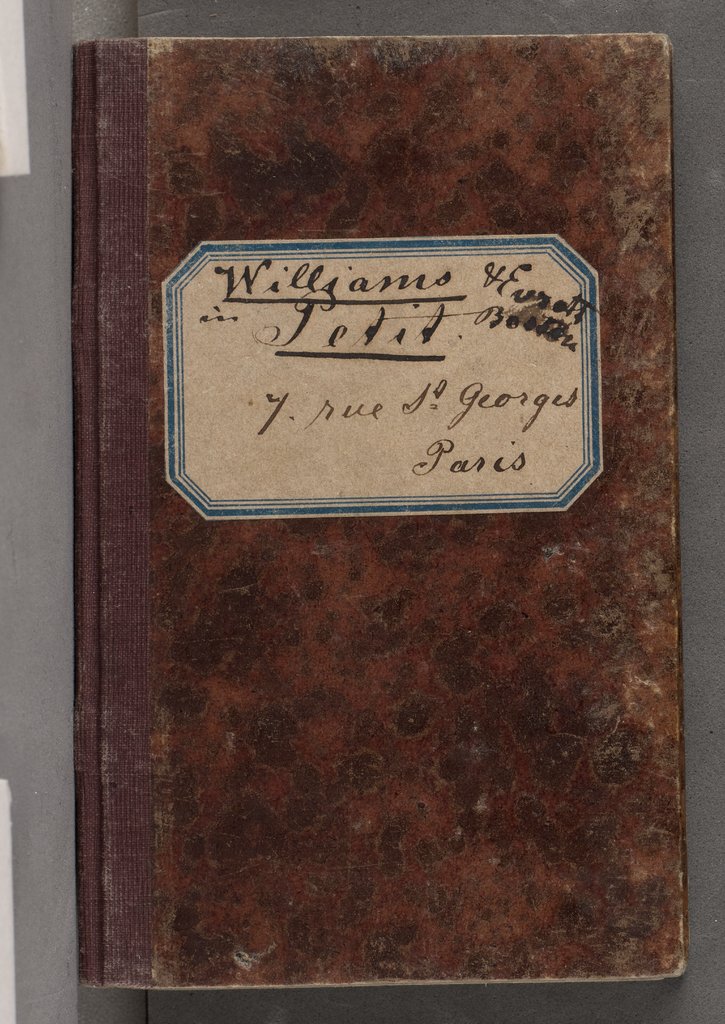 Williams & Everett
in Petit. Boston
7. rue St Georges
Paris